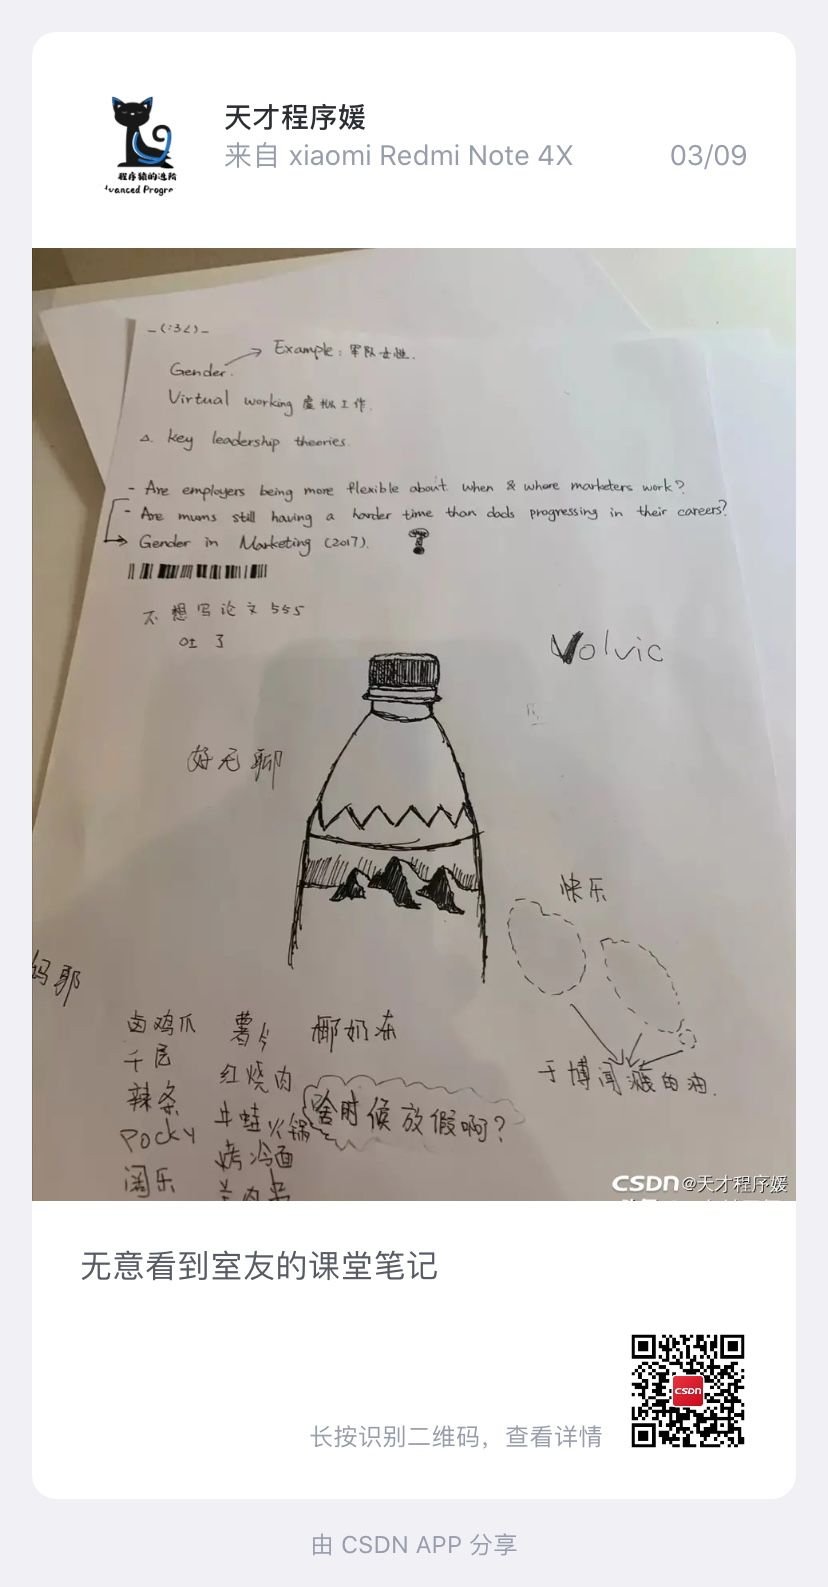 天才程序媛
来自 xiaomi Redmi Note 4X
03/09
程序猿的进阶
dvanced Progre
Example: 军队女性.
Gender.
Virtual working 虚拟工作.
△. key leadership theories.
- Are employers being more flexible about when & where marketers work?
- Are mums still having a harder time than dads progressing in their careers?
Gender in Marketing (2017).
不想写论文555
吐了
Volvic
好无聊
快乐
妈耶
卤鸡爪 薯片 椰奶冻
千层 红烧肉
辣条 牛蛙火锅 啥时候放假啊?
Pocky 烤冷面
阔乐
于博闻 的油.
CSDN @天才程序媛
无意看到室友的课堂笔记
CSDN
长按识别二维码，查看详情
由 CSDN APP 分享